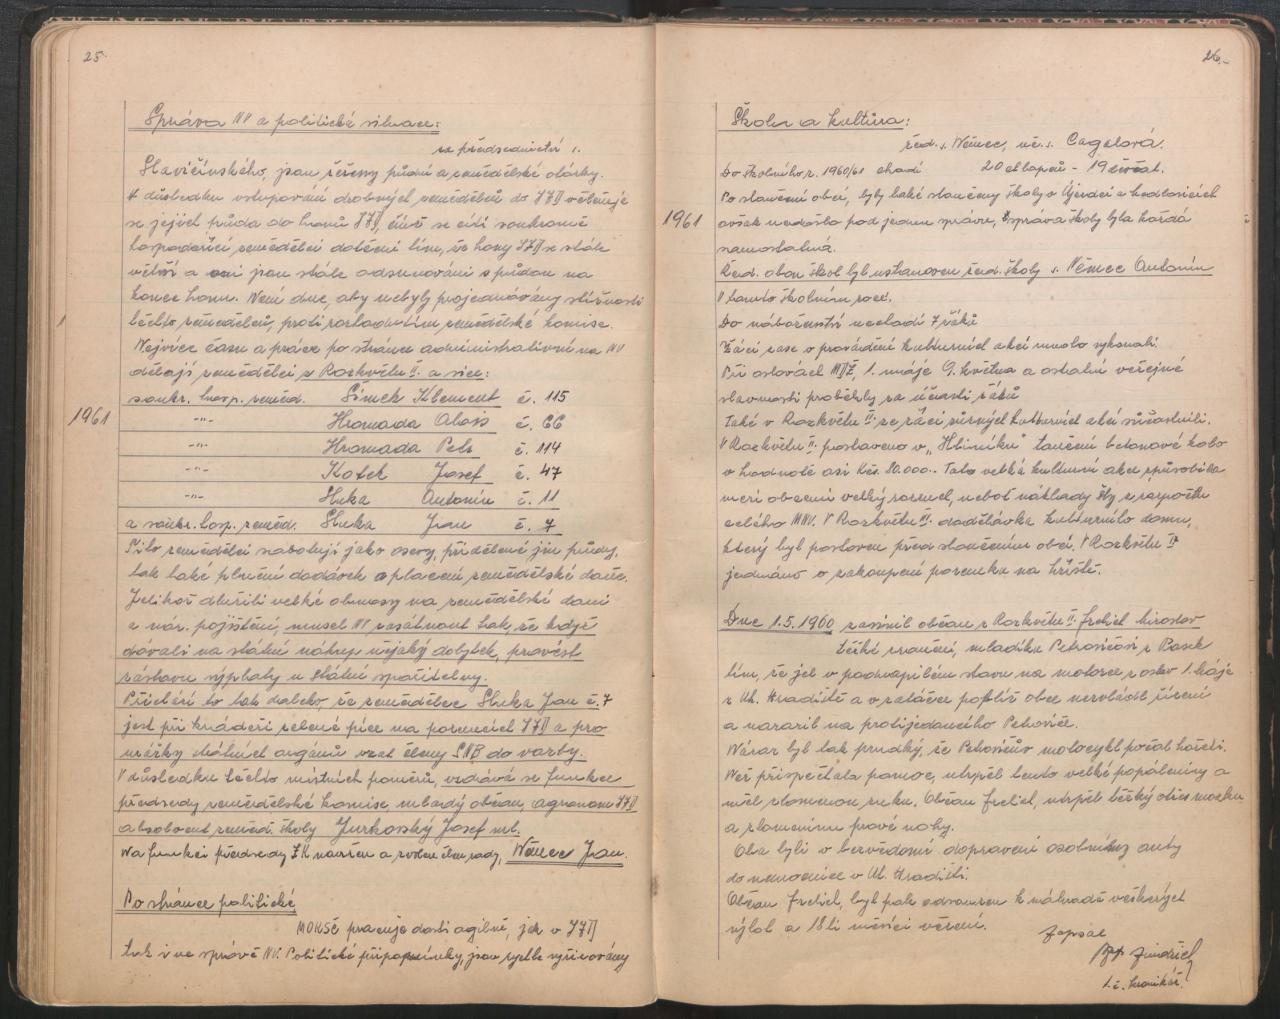 25.
Správa NV a politická situace:
za předsednictví s.
Slavičínského, jsou řešeny půdní a zemědělské otázky.
V důsledku vstupování drobných zemědělců do JZD včleňuje
se jejich půda do honů JZD, čímž se cítí soukromě
hospodařící zemědělci dotčeni tím, že hony JZD se stále
větší a oni jsou stále odsunováni s půdou na
konec honu. Není dne, aby nebyly projednávány stížnosti
těchto zemědělců, proti rozhodnutím zemědělské komise.
Nejvíce času a práce po stránce administrativní na NV
dělají zemědělci z Rozkvětu II. a sice:
1961
soukr. hosp. zeměd. Šimek Klement č. 115
-"- Hromada Alois č. 66
-"- Hromada Petr č. 114
-"- Kotek Josef č. 47
-"- Huka Antonín č. 11
a soukr. hosp. zeměd. Hluka Jan č. 7
Tito zemědělci sabotují jako osevy, přidělené jim půdy,
tak také plnění dodávek a placení zemědělské daně.
Jelikož dlužili velké obnosy na zemědělské dani
a nár. pojištění, musel NV zasáhnout tak, že když
dávali na státní nákup nějaký dobytek, provést
zástavu výplaty u státní spořitelny.
Přichází to tak daleko, že zemědělec Hluka Jan č. 7
jest při krádeži zelené píce na pozemcích JZD a pro
urážky státních orgánů vzat členy SNB do vazby.
V důsledku těchto místních poměrů, vzdává se funkce
předsedy zemědělské komise, mladý občan, agronom JZD
absolvent zeměd. školy Jurkovský Josef ml.
Na funkci předsedy ZK navržen a zvolen člen rady, Němec Jan.
Po stránce politické
MOKSČ pracuje dosti agilně, jak v JZD
tak i ve správě NV. Politické připomínky, jsou rychle vyřizovány
26.-
Škola a kultura:
řed. s. Němec, uč. s. Cagelová.
Do školního r. 1960/61 chodí 20 chlapců - 19 děvčat.
Po sloučení obcí, byly také sloučeny školy Újezdci a Kadlovicích
1961
avšak nedošlo pod jednu správu, správa školy byla každá
samostatná.
Řed. obou škol byl ustanoven řed. školy s. Němec Antonín
V tomto školním roce.
Do náboženství nechodí 7 žáků
Žáci zase v provádění kulturních akcí mnoho vykonali
Při oslavách MDŽ, 1. máje 9. května a ostatní veřejné
slavnosti proběhly za účasti žáků
Také v Rozkvětu II. se žáci různých kulturních akcí súčastnili.
V Rozkvětu II. postaveno v "Hliníku" taneční betonové kolo
v hodnotě asi Kčs. 80.000.- Tato velká kulturní akce způsobila
mezi občany velký rozruch, neboť náklady šly z rozpočtu
celého MNV. V Rozkvětu III. dodělávka kulturního domu,
který byl postaven před sloučením obcí. V Rozkvětu IV
jednáno o zakoupení pozemku na hřiště.
Dne 1.5.1960 zavinil občan z Rozkvětu II. Frelich Miroslav
těžké zranění, mladíka Petroviče z Bank
tím, že jel v podnapilém stavu na motorce z oslav 1. máje
z Uh. Hradiště a v zatáčce poblíž obce nezvládl řízení
a narazil na protijedoucího Petroviče.
Náraz byl tak prudký, že Petrovičův motocykl počal hořeti.
Než přispěchala pomoc, utrpěl tento velké popáleniny a
měl zlomenou ruku. Občan Frelich, utrpěl těžký otřes mozku
a zlomeninu pravé nohy.
Oba byli v bezvědomí dopraveni osobními auty
do nemocnice v Uh. Hradišti.
Občan Frelich, byl pak odsouzen k náhradě veškerých
výloh a 18ti měsíci vězení.
Zapsal
Jindřich
t.č. kronikář.